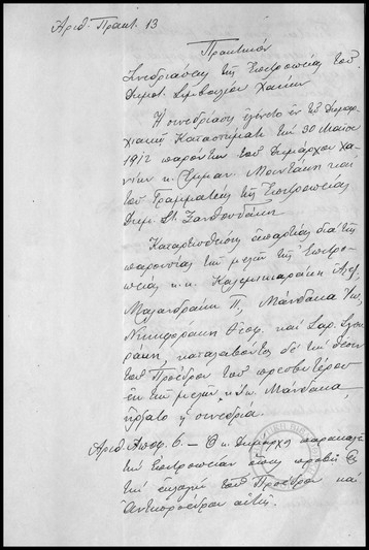 Αριθ. Πρακτ. 13
Πρακτικόν
Συνεδριάσεως της Επιτροπείας του
Δημοτ. Συμβουλίου Χανίων
Η συνεδρίασις εγένετο εν τω Δημαρ-
χιακώ Καταστήματι την 30 Μαΐου
1912 παρόντων του Δημάρχου Χα-
νίων κ. Εμμαν. Μουντάκη και
του Γραμματέως της Επιτροπείας
Δημ. Στ. Ξανθουδάκη
Καταρτισθείσης απαρτίας δια της
παρουσίας των μελών της Επιτρο-
πείας κ.κ.
Μαλανδράκη Π., Μάνδακα
Νικηφοράκη Θεοφ. και
καταλαβόντος δε την θέσιν
του Προέδρου του πρεσβυτέρου
εκ των μελών κ. Μάνδακα,
ήρξατο η συνεδρία.
Αριθ. Αποφ. 6 – Ο κ. Δήμαρχος παρακαλεί
την Επιτροπείαν όπως προβή εις
την εκλογήν του Προέδρου και
Αντιπροέδρου αυτής.